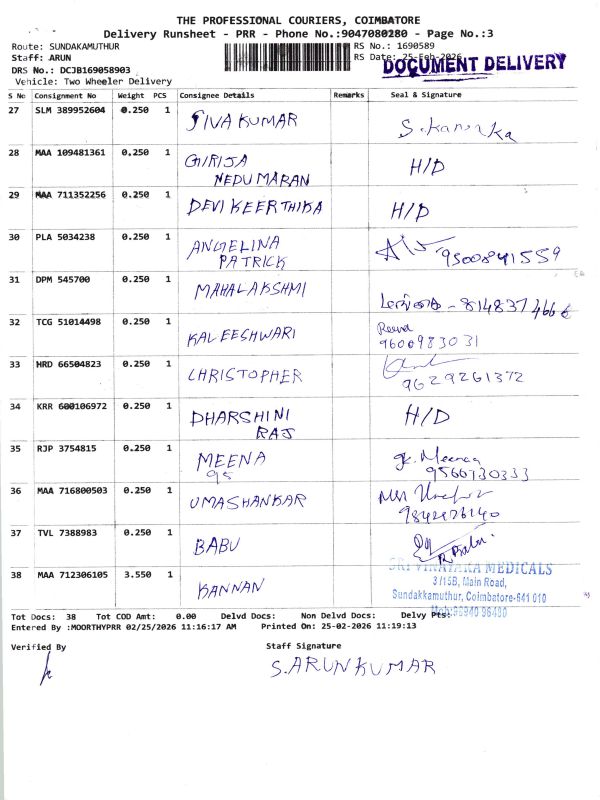 THE PROFESSIONAL COURIERS, COIMBATORE
Delivery Runsheet - PRR - Phone No.:9047080280 - Page No.:3
Route: SUNDAKAMUTHUR RS No.: 1690589
Staff: ARUN RS Date: 25-Feb-2026
DOCUMENT DELIVERY
DRS No.: DCJB169058903
Vehicle: Two Wheeler Delivery
S No Consignment No Weight PCS Consignee Details Remarks Seal & Signature
27 SLM 389952604 0.250 1 SIVA KUMAR
28 MAA 109481361 0.250 1 GIRIJA H/D
NEDUMARAN
29 MAA 711352256 0.250 1 DEVI KEERTHIKA H/D
30 PLA 5034238 0.250 1 ANGELINA 9500841559
PATRICK
31 DPM 545700 0.250 1 MAHALAKSHMI
32 TCG 51014498 0.250 1 KALEESHWARI
9600983031
33 HRD 66504823 0.250 1 CHRISTOPHER
9629261372
34 KRR 600106972 0.250 1 DHARSHINI H/D
RAJ
35 RJP 3754815 0.250 1 MEENA
95
36 MAA 716800503 0.250 1 UMASHANKAR
37 TVL 7388983 0.250 1 BABU R Babu
SRI VINAYAKA MEDICALS
38 MAA 712306105 3.550 1 KANNAN 3/15B, Main Road,
Sundakkamuthur, Coimbatore-641 010
Mob:96940 96480
Tot Docs: 38 Tot COD Amt: 0.00 Delvd Docs: Non Delvd Docs: Delvy Pts:
Entered By :MOORTHYPRR 02/25/2026 11:16:17 AM Printed On: 25-02-2026 11:19:13
Verified By Staff Signature
S.ARUNKUMAR